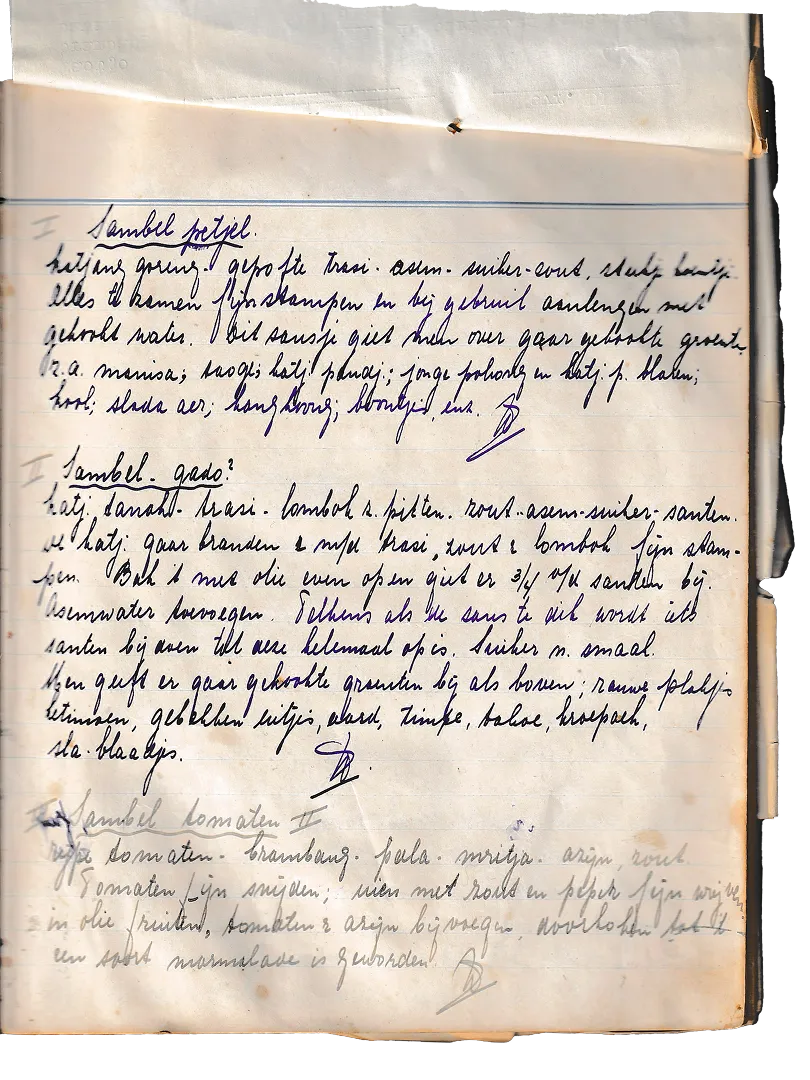 I Sambel petjel.
katjang goreng - gepofte trasi - asem - suiker - zout, stukje
alles te zamen fijnstampen en bij gebruik aanlengen met
gekookt water. Dit sausje giet men over gaar gekookte groente
z.a. manisa; taoge; katj. pandj.; jonge pohong en katj. p. blaren;
kool; slada aer; kangkoong; boontjes, enz.
II Sambel - gado?
katj. tanah - trasi - lombok z. pitten - zout - asem - suiker - santen.
de katj. gaar branden & m/d trasi, zout & lombok fijn stam-
pen. Bak 't met olie even op en giet er 3/4 v/d santen bij.
Asemwater toevoegen. Telkens als de saus te dik wordt iets
santen bij doen tot deze helemaal op is. Suiker n. smaak.
Men geeft er gaar gekookte groenten bij als boven; rauwe plakjes
ketimoen, gebakken uitjes, aard, tempe, tahoe, kroepoek,
sla-blaadjes.
Sambel tomaten II
rijpe tomaten - brambang - pala - mritja - azijn, zout.
Tomaten fijn snijden; uien met zout en peper fijn wrijven
in olie fruiten, tomaten & azijn bijvoegen, doorkoken tot 't
een soort marmelade is geworden.